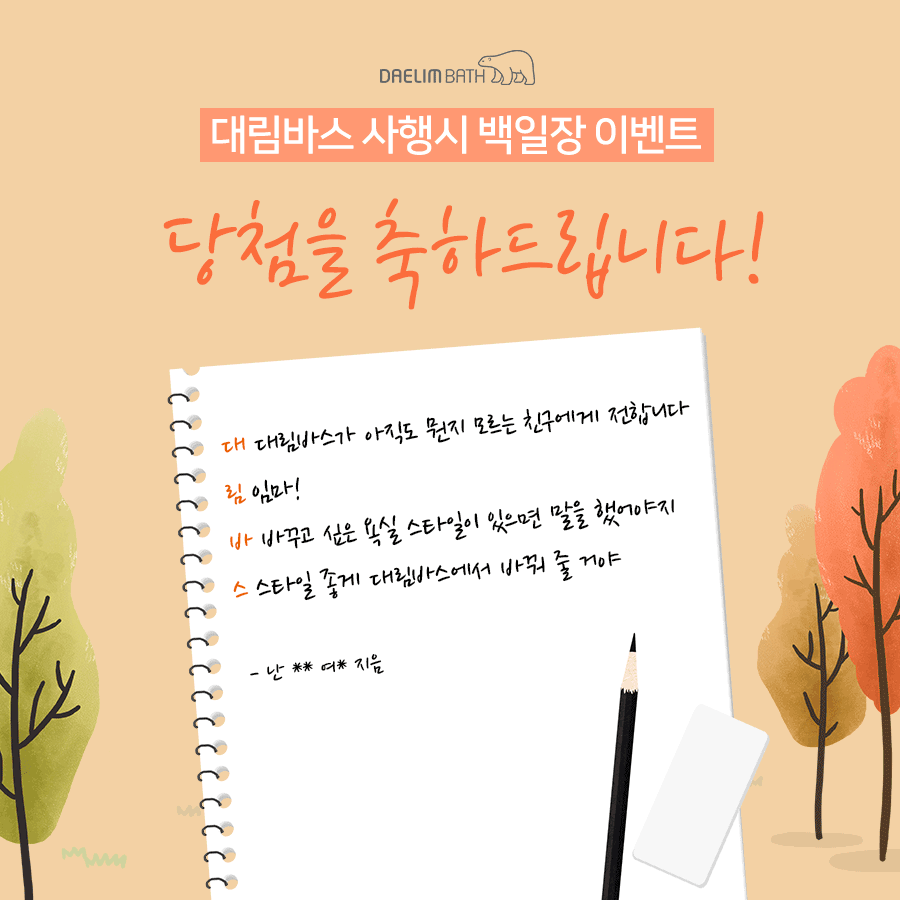 DAELIM BATH
대림바스 사행시 백일장 이벤트
당첨을 축하드립니다!
대 대림바스가 아직도 뭔지 모르는 친구에게 전합니다
림 임마!
바 바꾸고 싶은 욕실 스타일이 있으면 말을 했어야지
스 스타일 좋게 대림바스에서 바꿔 줄 거야
- 난 ** 여* 지음